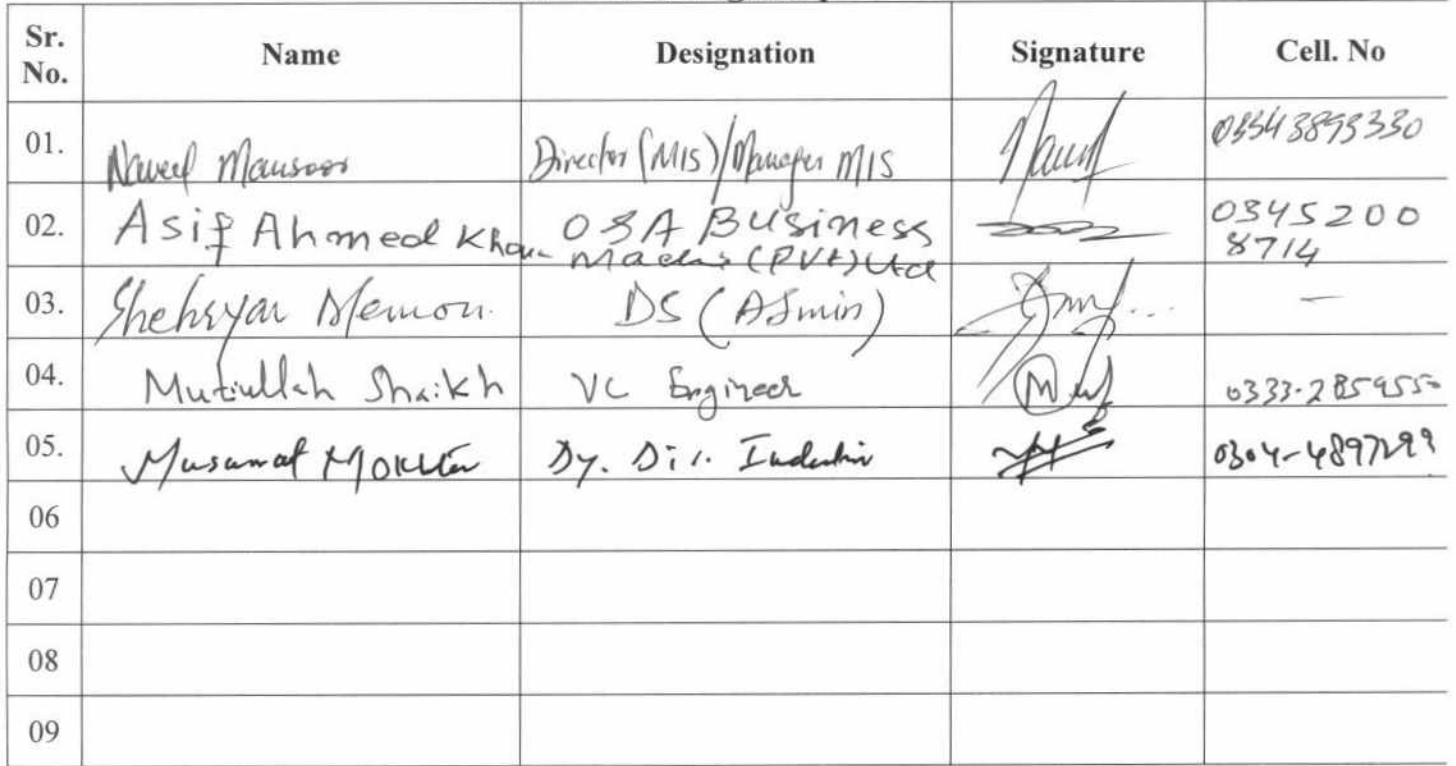 Sr. No. Name Designation Signature Cell. No
01. Naveed Mansoor Director (MIS)/Manager MIS 03343893330
02. Asif Ahmed Khan OSA Business (PVt) Ltd 0345200
8714
03. Shehryar Memon DS (Admin) —
04. Mutiullah Shaikh VC Engineer 0333-2859550
05. Dy. Dir. 0304-4897299
06
07
08
09